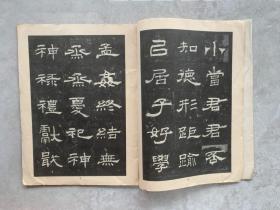 小當君君
知德形距踰
己居子好學
孟姦終結無
烝烝憂祀神
神祿禮獻歆